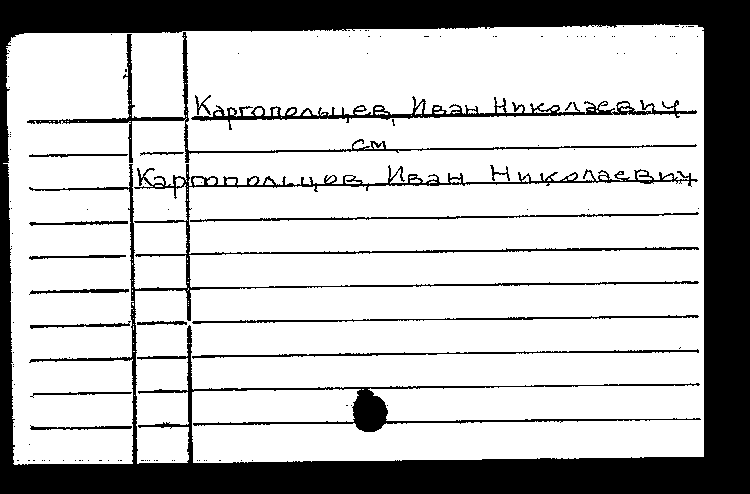 Каргопольцев, Иван Николаевич
см.
Каргопольцов, Иван Николаевич